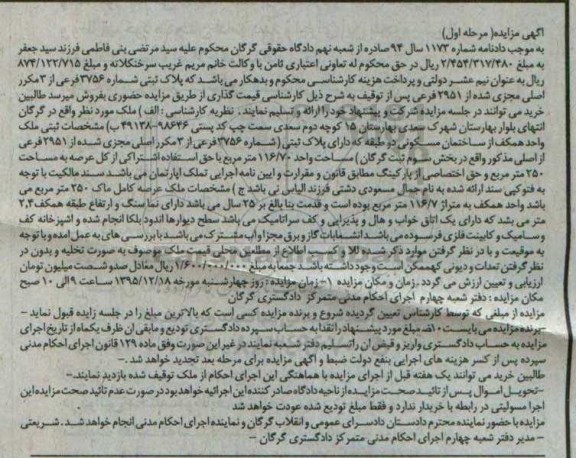 آگهی مزایده( مرحله اول)
به موجب دادنامه شماره ۱۱۷۳ سال ۹۴ صادره از شعبه نهم دادگاه حقوقی گرگان محکوم علیه سید مرتضی بنی فاطمی فرزند سید جعفر
به مبلغ ۲/۴۵۴/۳۱۷/۴۸۰ ریال در حق محکوم له تعاونی اعتباری ثامن با وکالت خانم مریم غریب سرخنکلاته و مبلغ ۸۷۴/۱۲۲/۷۱۵
ریال به عنوان نیم عشر دولتی و پرداخت هزینه کارشناسی محکوم و بدهکار می باشد که پلاک ثبتی شماره ۳۷۵۶ فرعی از ۳ مکرر
اصلی مجزی شده از ۲۹۵۱ فرعی پس از توقیف به شرح ذیل کارشناسی قیمت گذاری از طریق مزایده حضوری بفروش میرسد طالبین
خرید می توانند در جلسه مزایده شرکت و پیشنهاد خود را ارائه و تسلیم نمایند. نظریه کارشناسی : الف ) ملک مورد نظر واقع در گرگان
انتهای بلوار بهارستان شهرک سعدی بهارستان ۱۵ کوچه دوم سعدی سمت چپ کد پستی ۹۸۶۴۶-۴۹۱۳۸ ب) مشخصات ثبتی ملک
واحد همکف از ساختمان مسکونی دو طبقه که دارای پلاک ثبتی ( شماره ۳۷۵۶ فرعی از ۳ مکرر اصلی مجزی شده از ۲۹۵۱ فرعی
از اصلی مذکور واقع در بخش سوم ثبت گرگان ) مساحت واحد ۱۱۶/۷۰ متر مربع با حق استفاده اشتراکی از کل عرصه به مساحت
۲۵۰ متر مربع و حق اختصاصی از پارکینگ مطابق قانون و مقررات و آیین نامه اجرایی تملک آپارتمان می باشد سند مالکیت با توجه
به فتوکپی سند ارائه شده به نام جمال مسعودی دشتی فرزند الیاس می باشد ج ) مشخصات ملک عرصه کامل ملک ۲۵۰ متر مربع می
باشد واحد همکف به متراژ ۱۱۶/۷ متر مربع بوده است و قدمت بنا بالغ بر ۲۵ سال می باشد دارای نما سنگ و ارتفاع طبقه همکف ۲,۴
متر می بشد که دارای یک اتاق خواب و هال و پذیرایی و کف سرامیک می باشد سطح دیوارها اندود بلکا انجام شده و آشپزخانه کف
و سرامیک و کابینت فلزی فرسوده می باشد انشعابات گاز و برق مجزا و آب مشترک می باشد با بررسی های به عمل آمده و با توجه
به موقعیت و با در نظر گرفتن موارد ذکر شده بالا و کسب اطلاع از مطلعین محلی قیمت ملک موصوف به صورت تخلیه و بدون در
نظر گرفتن تعهدات و دیونی که ممکن است وجود داشته باشد جمعا به مبلغ ۱/۶۰۰/۰۰۰/۰۰۰ ریال معادل صدو شصت میلیون تومان
ارزیابی و تعیین ارزش می گردد .زمان و مکان مزایده ۱- زمان مزایده : روز چهارشنبه مورخه ۱۳۹۵/۱۲/۱۸ ساعت ۹ الی ۱۰ صبح
مکان مزایده : دفتر شعبه چهارم اجرای احکام مدنی متمرکز دادگستری گرگان
مزایده از مبلغی که توسط کارشناس تعیین گردیده شروع و برنده مزایده کسی است که بالاترین مبلغ را در جلسه زایده قبول نماید -
-برنده مزایده می بایست ۱۰٪ مبلغ مورد پیشنهاد را نقدا به حساب سپرده دادگستری تودیع و مابقی آن ظرف یکماه از تاریخ اجرای
مزایده به حساب دادگستری واریز و فیش آن را تسلیم دفتر شعبه نمایند در غیر این صورت وفق ماده ۱۲۹ قانون اجرای احکام مدنی
سپرده پس از کسر هزینه های اجرایی بنفع دولت ضبط و آگهی مزایده برای مرحله بعد تجدید خواهد شد .-
طالبین خرید می توانند یک هفته قبل از اجرای مزایده با هماهنگی این اجرای احکام از ملک توقیف شده بازدید نمایند.-
-تحویل اموال پس از تائید صحت مزایده از ناحیه دادگاه صادر کننده این اجرائیه خواهد بود در صورت عدم تائید صحت مزایده این
اجرا مسولیتی در رابطه با خریدار ندارد و فقط مبلغ تودیع شده عودت خواهد شد
مزایده با حضور نماینده محترم دادستان دادسرای عمومی و انقلاب گرگان و نماینده اجرای احکام مدنی انجام خواهد شد. شریعتی
- مدیر دفتر شعبه چهارم اجرای احکام مدنی متمرکز دادگستری گرگان -